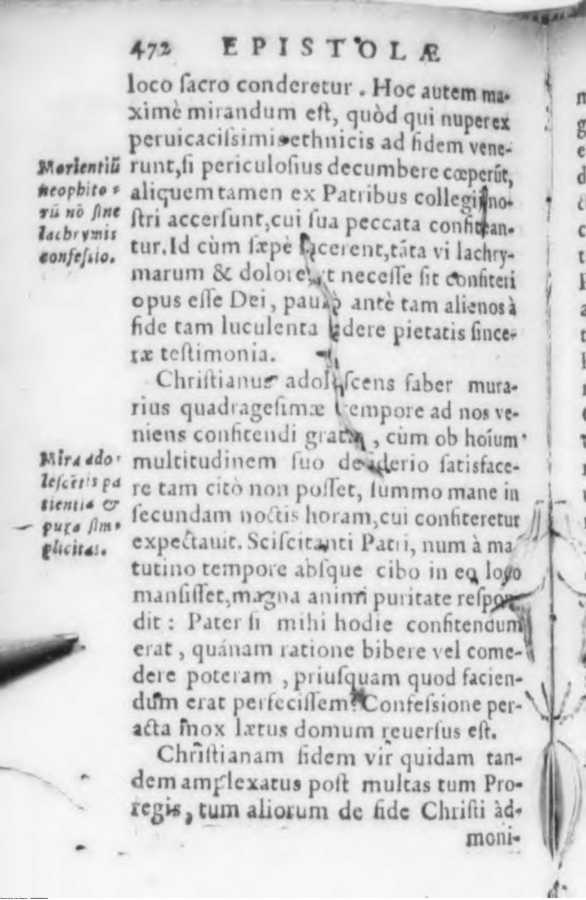 472 EPISTOLÆ
loco sacro conderetur. Hoc autem ma-
ximè mirandum est, quòd qui nuper ex
peruicacissimis ethnicis ad fidem vene-
runt, si periculosius decumbere cœperũt,
aliquem tamen ex Patribus collegij no-
stri accersunt, cui sua peccata confitean-
tur. Id cùm sæpè facerent, tãta vi lachry-
marum & dolore, vt necesse sit confiteri
opus esse Dei, paulò antè tam alienos à
fide tam luculenta edere pietatis since-
ræ testimonia.
Morientiũ
neophito-
rũ nõ sine
lachrymis
confessio.
Christianus adolescens faber mura-
rius quadragesimæ tempore ad nos ve-
niens confitendi gratia, cùm ob hoĩum
multitudinem suo desiderio satisface-
re tam citò non posset, summo mane in
secundam noctis horam, cui confiteretur
expectauit. Sciscitanti Patri, num à ma
tutino tempore absque cibo in eo loco
mansisset, magna animi puritate respon-
dit: Pater si mihi hodie confitendum
erat, quánam ratione bibere vel come-
dere poteram, priusquam quod facien-
dum erat perfecissem? Confessione per-
acta mox lætus domum reuersus est.
Mira ado-
lescẽtis pa
tientia &
pura sim-
plicitas.
Christianam fidem vir quidam tan-
dem amplexatus post multas tum Pro-
regis, tum aliorum de fide Christi àd-
moni-